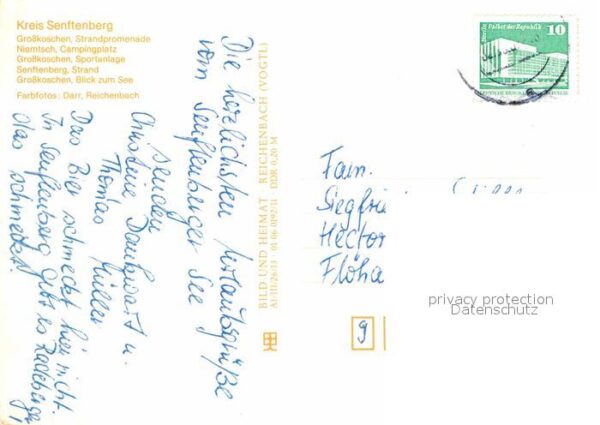 Kreis Senftenberg
Großkoschen, Strandpromenade
Niemtsch, Campingplatz
Großkoschen, Sportanlage
Senftenberg, Strand
Großkoschen, Blick zum See
Farbfotos: Darr, Reichenbach
Die herzlichsten Urlaubsgrüße
vom Senftenberger See
senden
Christine u.
Thomas Müller
Das Bier schmeckt hier nicht.
In Senftenberg gibt es Radeberger,
das schmeckt!
BILD UND HEIMAT REICHENBACH (VOGTL)
A1/III/26/13 01 06 0192/11 DDR 0,20 M
Berlin, Palast der Republik
10
Fam.
Siegfri
Hector
Flöha
9
privacy protection
Datenschutz